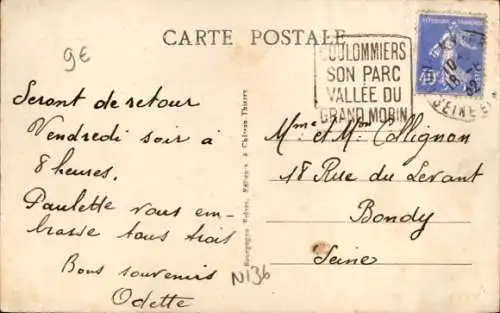 CARTE POSTALE
9€
COULOMMIERS
SON PARC
VALLÉE DU
GRAND MORIN
Seront de retour
Vendredi soir à
8 heures.
Paulette vous em-
brasse tous trois
Bons souvenirs
Odette
N136
Bourgogne Frères, Éditeurs à Château-Thierry
Mme et Mr Collignon
18 Rue du Levant
Bondy
Seine